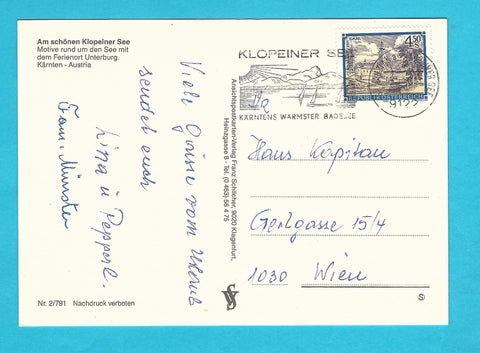 Am schönen Klopeiner See
Motive rund um den See mit
dem Ferienort Unterburg.
Kärnten - Austria
Viele Grüße vom Urlaub
sendet euch
Lina u Pepperl.
Fam. Münster
Nr. 2/791 Nachdruck verboten
Ansichtspostkarten-Verlag Franz Schilcher, 9020 Klagenfurt,
Heinzgasse 8 - Tel. (0 463) 56 4 75
KLOPEINER SEE
KÄRNTENS WÄRMSTER BADESEE
4.50
S
REPUBLIK ÖSTERREICH
9122
Hans Kapitan
Gerlgasse 15/4
1030 Wien